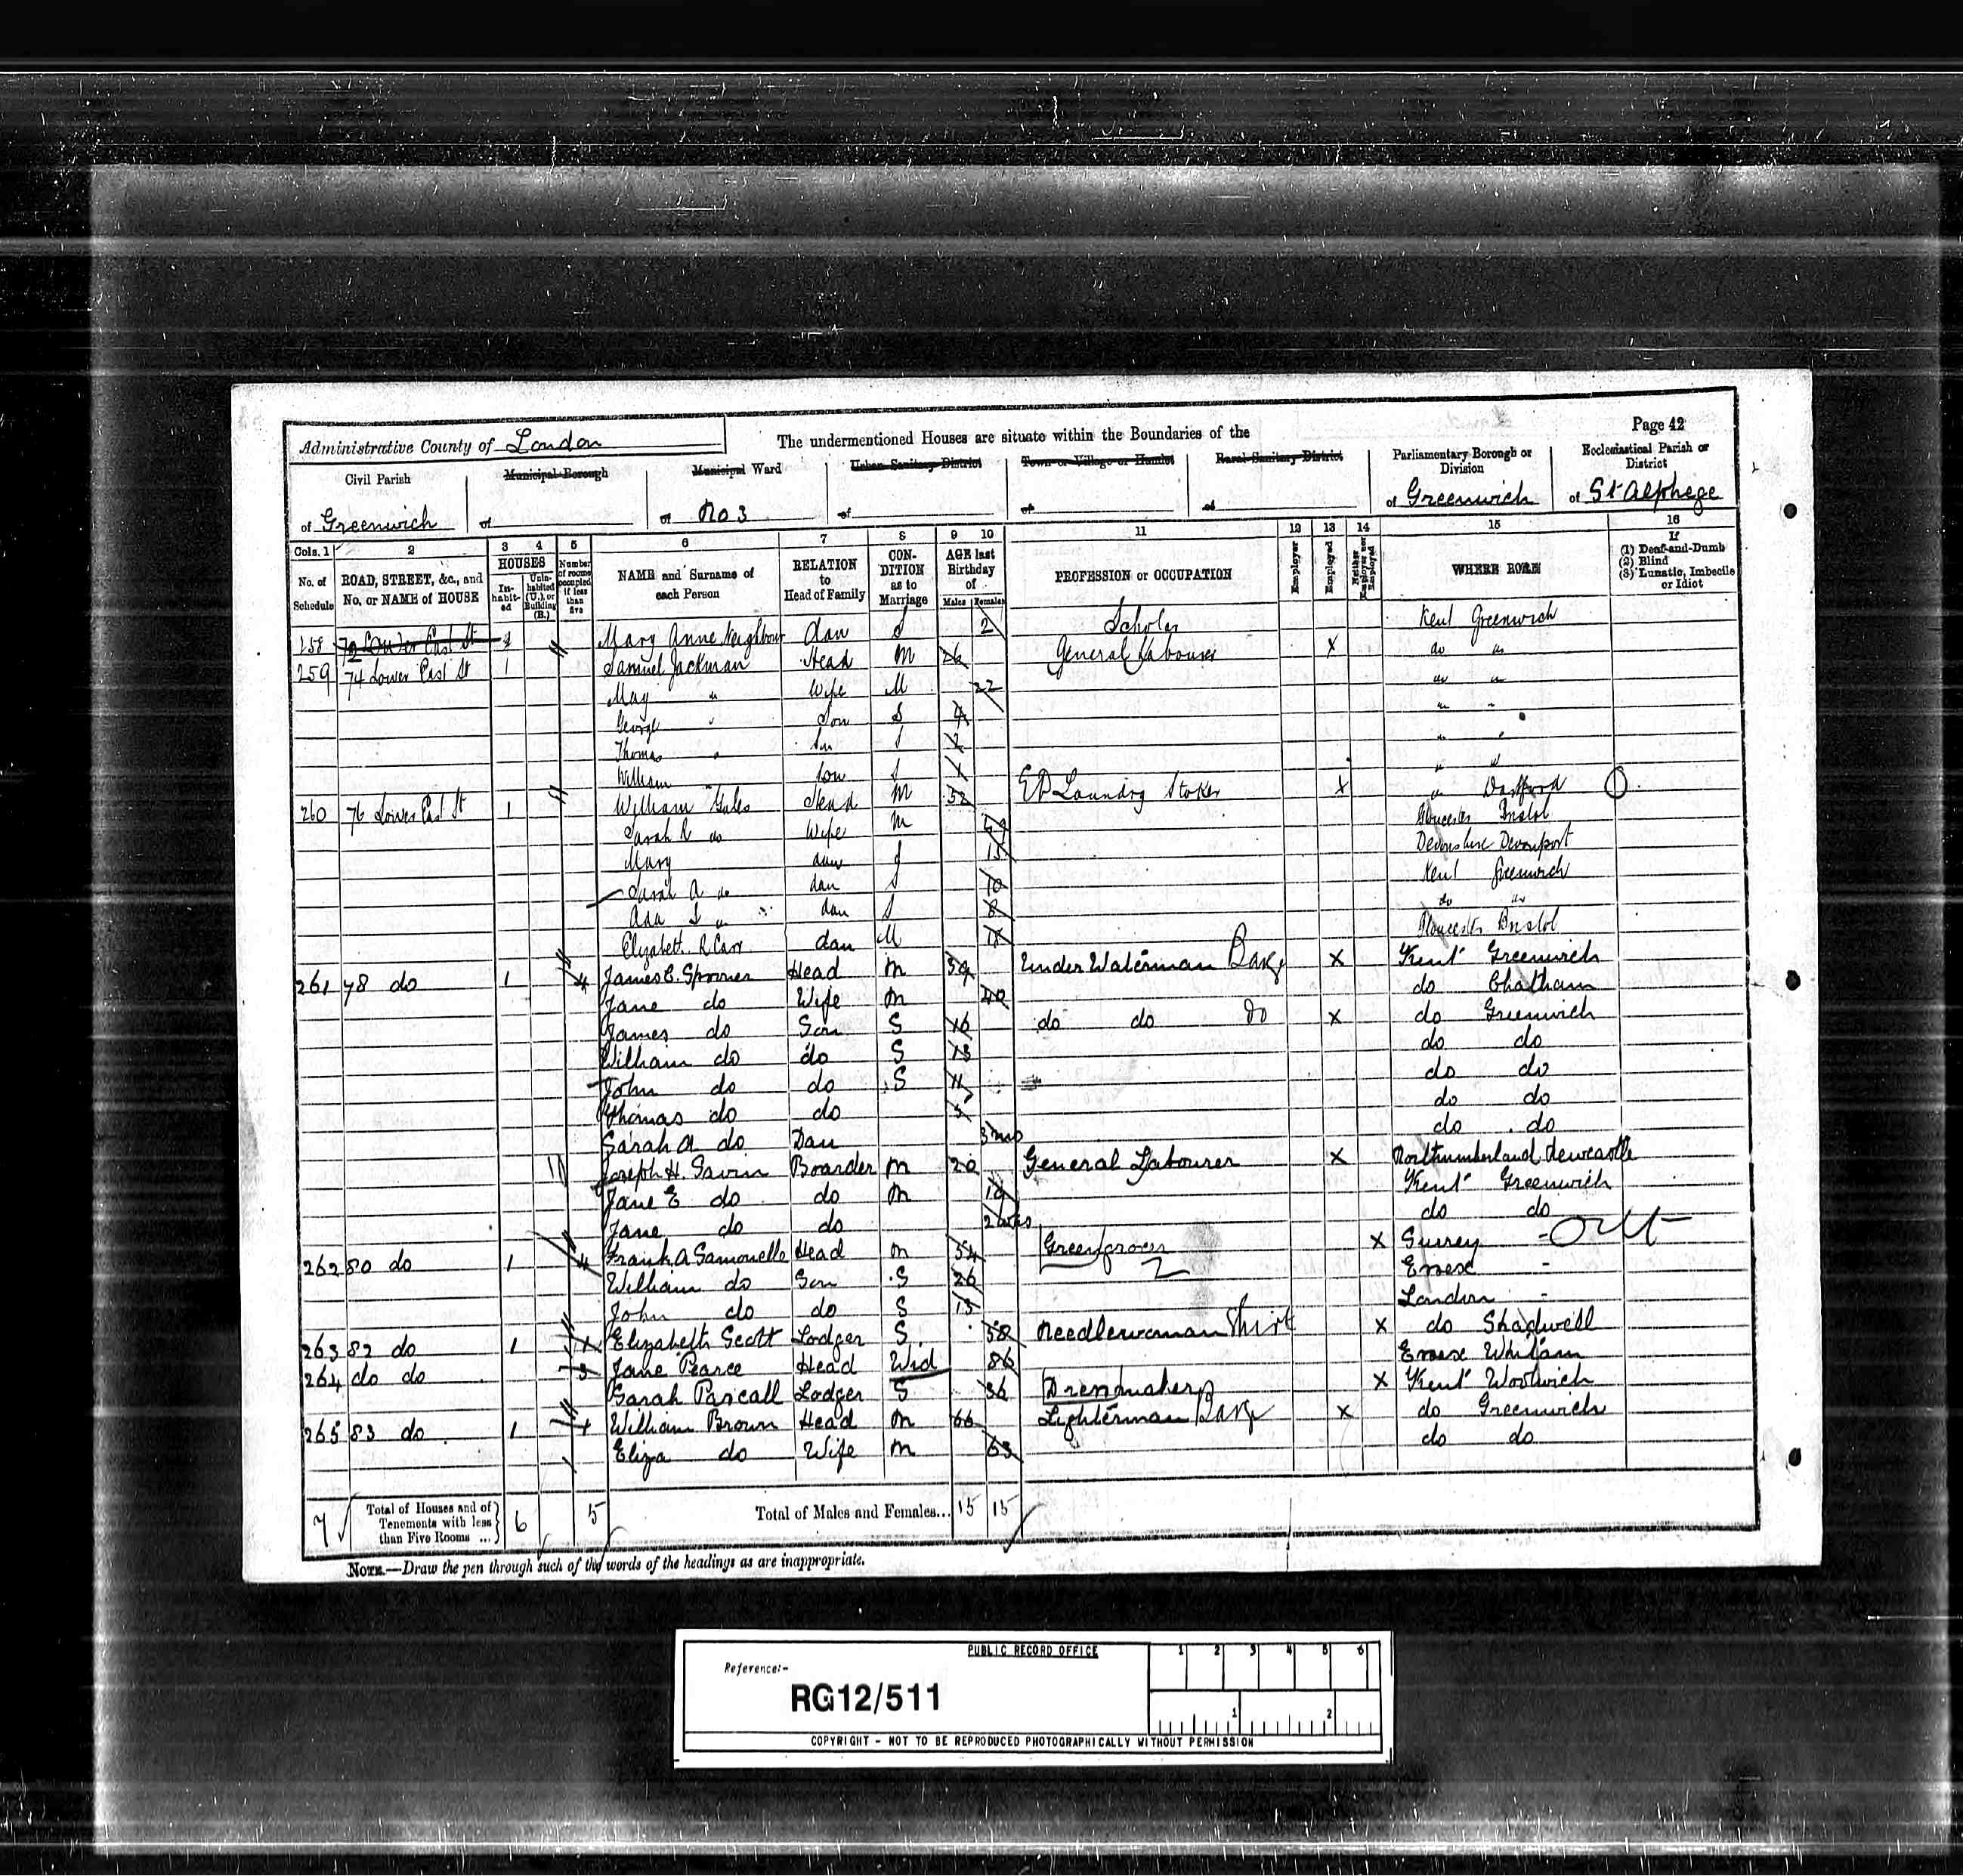 Page 42
Administrative County of London
The undermentioned Houses are situate within the Boundaries of the
Civil Parish of Greenwich
Municipal Borough of
Municipal Ward of No 3
Urban Sanitary District of
Town or Village or Hamlet of
Rural Sanitary District of
Parliamentary Borough or Division of Greenwich
Ecclesiastical Parish or District of St Alphege
Cols. 1 2 3 4 5 6 7 8 9 10 11 12 13 14 15 16
No. of Schedule
ROAD, STREET, &c., and No. or NAME of HOUSE
HOUSES
In-habit-ed
Unin-habited (U.), or Building (B.)
Number of rooms occupied if less than five
NAME and Surname of each Person
RELATION to Head of Family
CON-DITION as to Marriage
AGE last Birthday of
Males Females
PROFESSION or OCCUPATION
Employer
Employed
Neither Employer nor Employed
WHERE BORN
If (1) Deaf-and-Dumb (2) Blind (3) Lunatic, Imbecile or Idiot
158 72 Lower East St Mary Anne Neighbour dau S 2 Scholar Kent Greenwich
259 74 Lower East St 1 Samuel Jackman Head M 26 General Labourer X do do
May " Wife M 22 " "
George " Son S 4 " "
Thomas " Son S 2 " "
William Son S 1 " "
260 76 Lower East St 1 William Head M 52 Laundry Stoker X " Dartford
Sarah A do Wife M Gloucester Bristol
Mary dau S 15 Devonshire Devonport
Sarah A do dau S 10 Kent Greenwich
Ada " dau S 8 do do
Elizabeth R Carr dau M 18 Gloucester Bristol
261 78 do 1 4 James C. Spooner Head M 39 Under Waterman Barge X Kent Greenwich
Jane do Wife M 40 do Chatham
James do Son S 16 do do do X do Greenwich
William do do S 13 do do
John do do S 11 do do
Thomas do do 5 do do
Sarah A do Dau 3 mo do do
Joseph H. Gavin Boarder M 20 General Labourer X Northumberland Newcastle
Jane E do do M 19 Kent Greenwich
Jane do do do do
262 80 do 1 4 Frank A Samouelle Head M 54 Greengrocer X Surrey -
William do Son S 26 Essex -
John do do S 15 London -
263 82 do 1 1 Elizabeth Scott Lodger S 58 Needlewoman Shirt X do Shadwell
264 do do 3 Jane Pearce Head Wid 86 Essex Whitam
Sarah Pascall Lodger S 36 Dressmaker X Kent Woolwich
265 83 do 1 4 William Brown Head M 66 Lighterman Barge X do Greenwich
Eliza do Wife M 63 do do
7 Total of Houses and of Tenements with less than Five Rooms ... 6 5 Total of Males and Females... 15 15
NOTE.—Draw the pen through such of the words of the headings as are inappropriate.
PUBLIC RECORD OFFICE
1 2 3 4 5 6
Reference:-
RG12/511
1 2
COPYRIGHT - NOT TO BE REPRODUCED PHOTOGRAPHICALLY WITHOUT PERMISSION